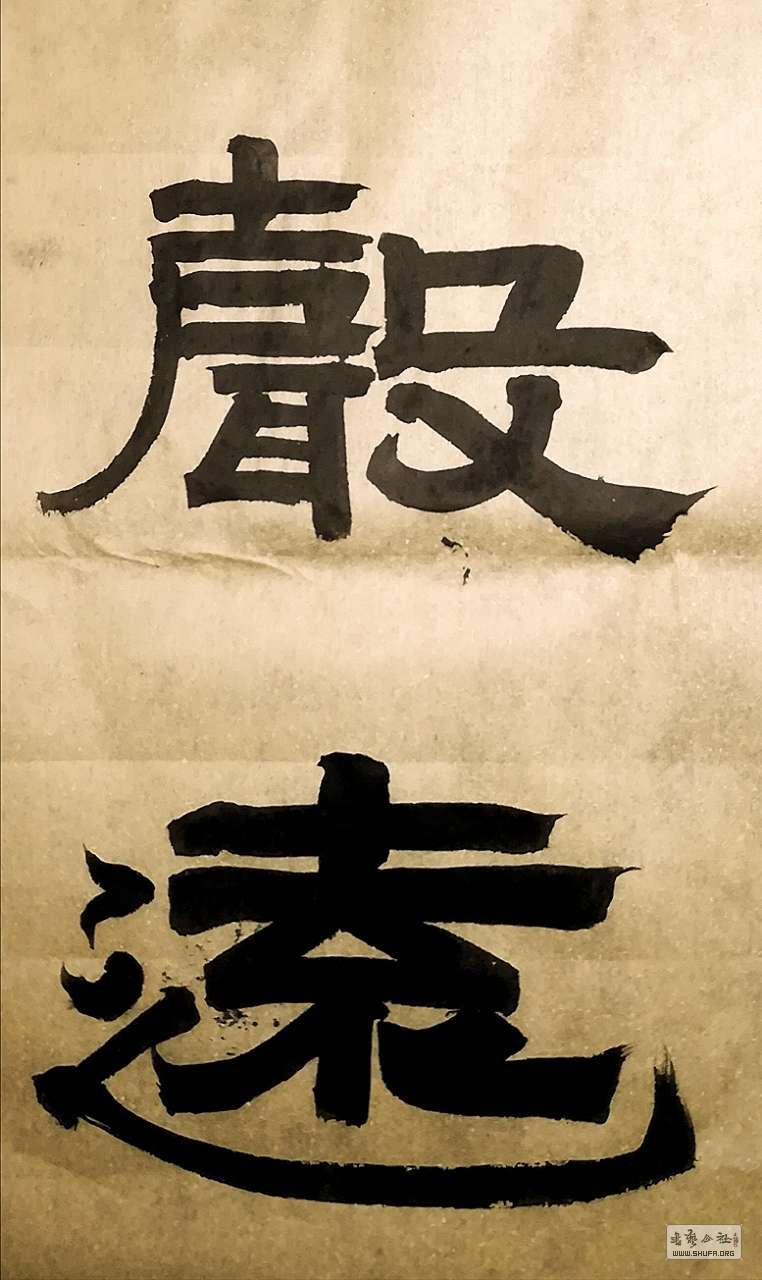 聲
遠
書藝公社
WWW.SHUFA.ORG